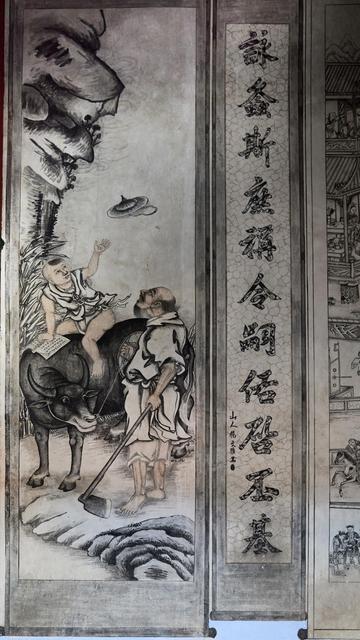 詠螽斯庶稱令嗣佑啓丕基
山人楊文